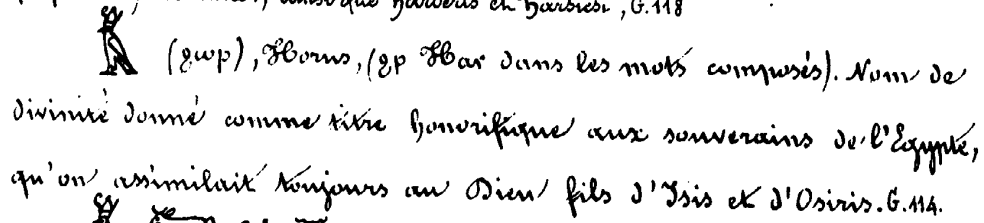 ainsi que Haroeris et Harsiesi, G. 118
(ϩωρ), Horus, (ϩρ Har dans les mots composés). Nom de
divinité donné comme titre honorifique aux souverains de l'Egypte,
qu'on assimilait toujours au Dieu fils d'Isis et d'Osiris. G. 114.